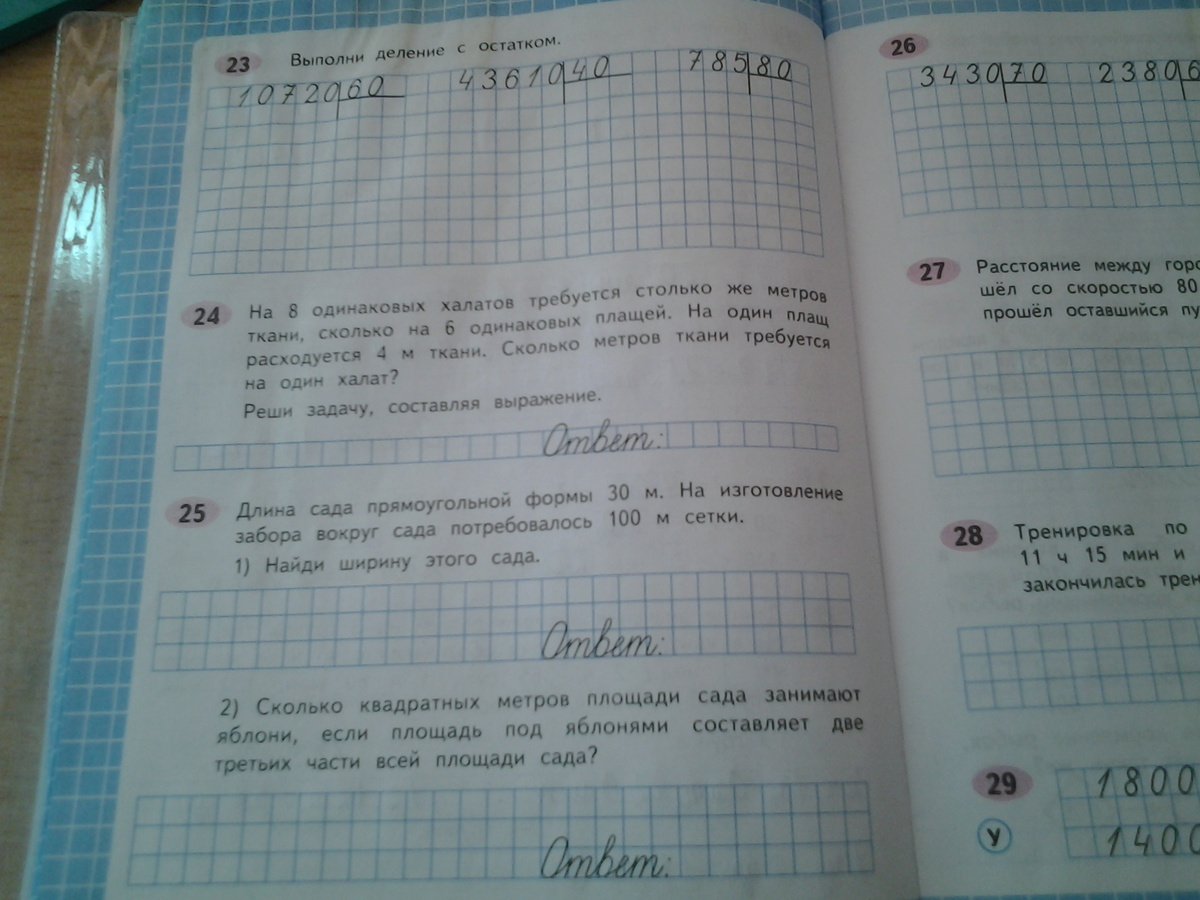 23 Выполни деление с остатком.
10720 60 43610 40 785 80
24 На 8 одинаковых халатов требуется столько же метров
ткани, сколько на 6 одинаковых плащей. На один плащ
расходуется 4 м ткани. Сколько метров ткани требуется
на один халат?
Реши задачу, составляя выражение.
Ответ:
25 Длина сада прямоугольной формы 30 м. На изготовление
забора вокруг сада потребовалось 100 м сетки.
1) Найди ширину этого сада.
Ответ:
2) Сколько квадратных метров площади сада занимают
яблони, если площадь под яблонями составляет две
третьих части всей площади сада?
Ответ:
26
3430 70 2380
27 Расстояние между
шёл со скоростью 80
прошёл оставшийся
28 Тренировка по
11 ч 15 мин и
закончилась
29 1800
У 140